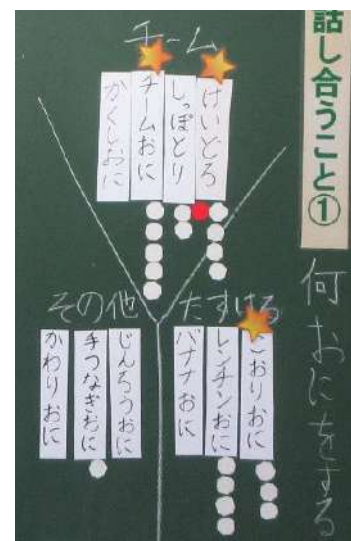 話し合うこと①
何おにをする
チーム
けいどろ
しっぽとり
チームおに
かくしおに
たすける
こおりおに
レンチンおに
バナナおに
その他
じんろうおに
手つなぎおに
かわりおに